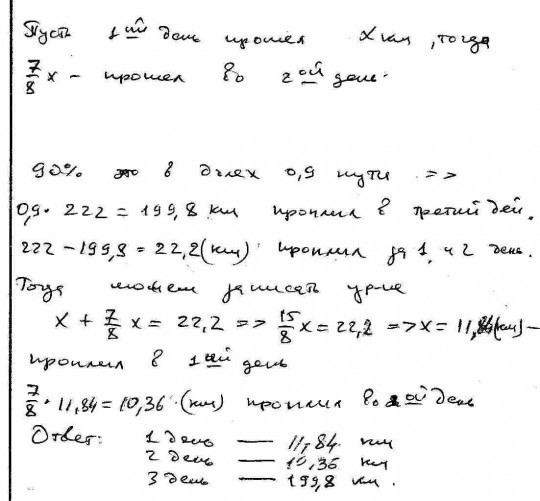 Пусть 1ый день прошел x км, тогда
7/8 x – прошел во 2ой день.
90% это в долях 0,9 пути =>
0,9 · 222 = 199,8 км прошли в третий дей.
222 – 199,8 = 22,2 (км) прошли за 1 и 2 день.
Тогда можем записать ур-ие
x + 7/8 x = 22,2 => 15/8 x = 22,2 => x = 11,84 (км) –
прошли в 1ый день
7/8 · 11,84 = 10,36 (км) прошли во 2ой день
Ответ: 1 день — 11,84 км
2 день — 10,36 км
3 день — 199,8 км.